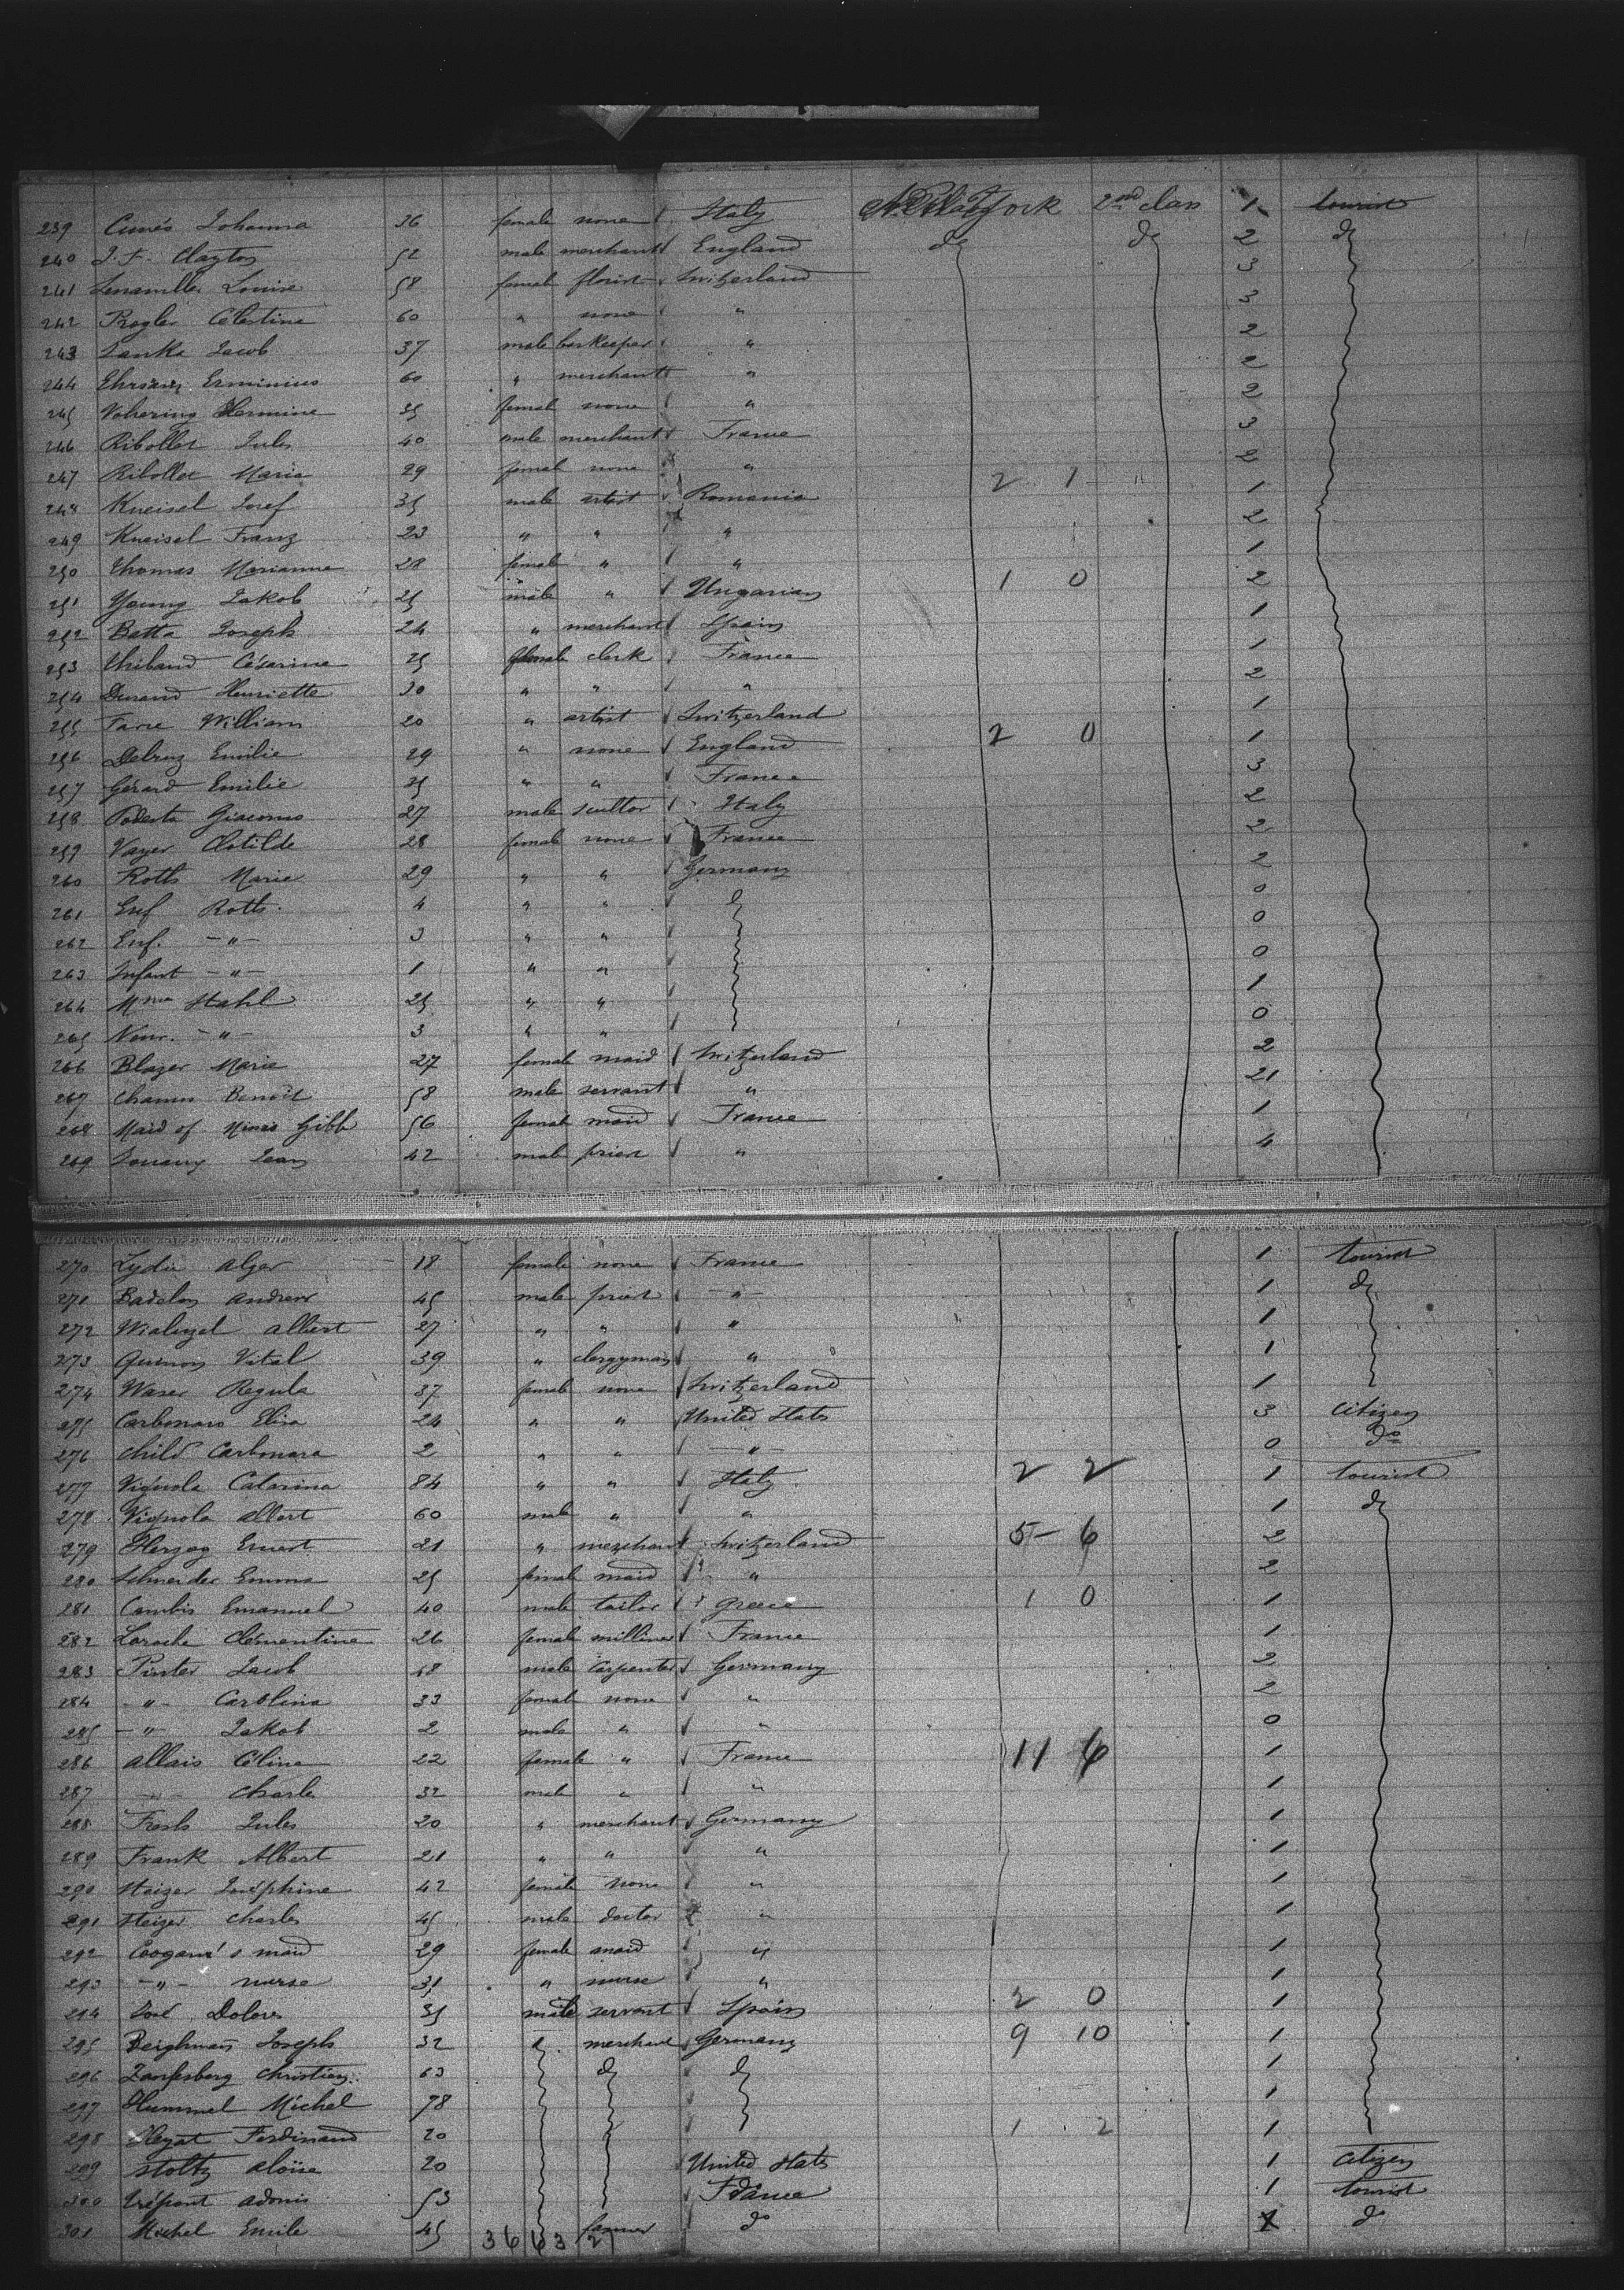 239 Cunés Johanna 36 female none Italy New York 2nd class 1 tourist
240 J. F. Clayton 52 male merchant England do do 2 do
241 Louise 58 female florist Switzerland 3
242 Celestine 60 " none " 3
243 Jacob 37 male barkeeper " 2
244 Erminius 60 " merchant " 2
245 Hermine 35 female none " 2
246 Ribollet Jules 40 male merchant France 3
247 Ribollet Maria 29 female none " 2 1 " 2
248 Kneisel Josef 35 male artist Romania 1
249 Kneisel Franz 23 " " " 2
250 Thomas Marianne 28 female " " 1
251 Young Jakob 25 male " Ungarian 1 0 2
252 Batta Joseph 24 " merchant Spain 1
253 Thibaud Césarine 25 female clerk France 1
254 Durand Henriette 30 " " " 2
255 Favre William 20 " artist Switzerland 1
256 Delruz Emilie 29 " none England 2 0 1
257 Gérard Emilie 35 " " France 3
258 Podesta Giacomo 27 male scultor Italy 2
259 Vayer Clotilde 28 female none France 2
260 Roth Marie 29 " " Germany 2
261 Enf Roth. 4 " " do 0
262 Enf. -"- 3 " " 0
263 Infant -"- 1 " " 0
264 Mme Stahl 25 " " 1
265 -"- 3 " " 0
266 Blazer Marie 27 female maid Switzerland 2
267 Benoît 58 male servant " 21
268 Maid of Gibb 56 female maid France 1
269 Jean 42 male priest " 4
270 Lydie Alger 18 female none France 1 tourist
271 Badelon Andrew 45 male priest -"- 1 do
272 Albert 27 " " " 1
273 Vital 39 " clergyman " 1
274 Waser Regula 37 female none Switzerland 1
275 Carbonara Elisa 24 " " United States 3 citizen
276 child Carbonara 2 " " -"- 0 do
277 Vignola Catarina 84 " " Italy 2 2 1 tourist
278 Vignola Albert 60 male " " 1 do
279 Herzog Ernest 21 " merchant Switzerland 5 - 6 2
280 Schneider Emma 25 female maid " 2
281 Cambis Emanuel 40 male tailor Greece 1 0 1
282 Laroche Clémentine 26 female milliner France 1
283 Pinter Jacob 48 male carpenter Germany 2
284 -"- Carolina 33 female none " 2
285 -"- Jakob 2 male " " 0
286 Allais Céline 22 female " France 11 6 1
287 -"- Charles 32 male " " 1
288 Jules 20 " merchant Germany 1
289 Frank Albert 21 " " " 1
290 Steizer Joséphine 42 female none " 1
291 Steizer Charles 45 male doctor " 1
292 Coogan's maid 29 female maid " 1
293 -"- nurse 31 " nurse " 1
294 José Dolores 35 male servant Spain 2 0 1
295 Beighman Joseph 32 do. merchant Germany 9 10 1
296 Christian 63 do do 1
297 Hummel Michel 78 1
298 Ferdinand 20 1 2 1
299 Stoltz Aloïse 20 United States 1 citizen
300 Trépont Adonis 53 France 1 tourist
301 Michel Emile 45 farmer do 1 do
3 6 6 3 2